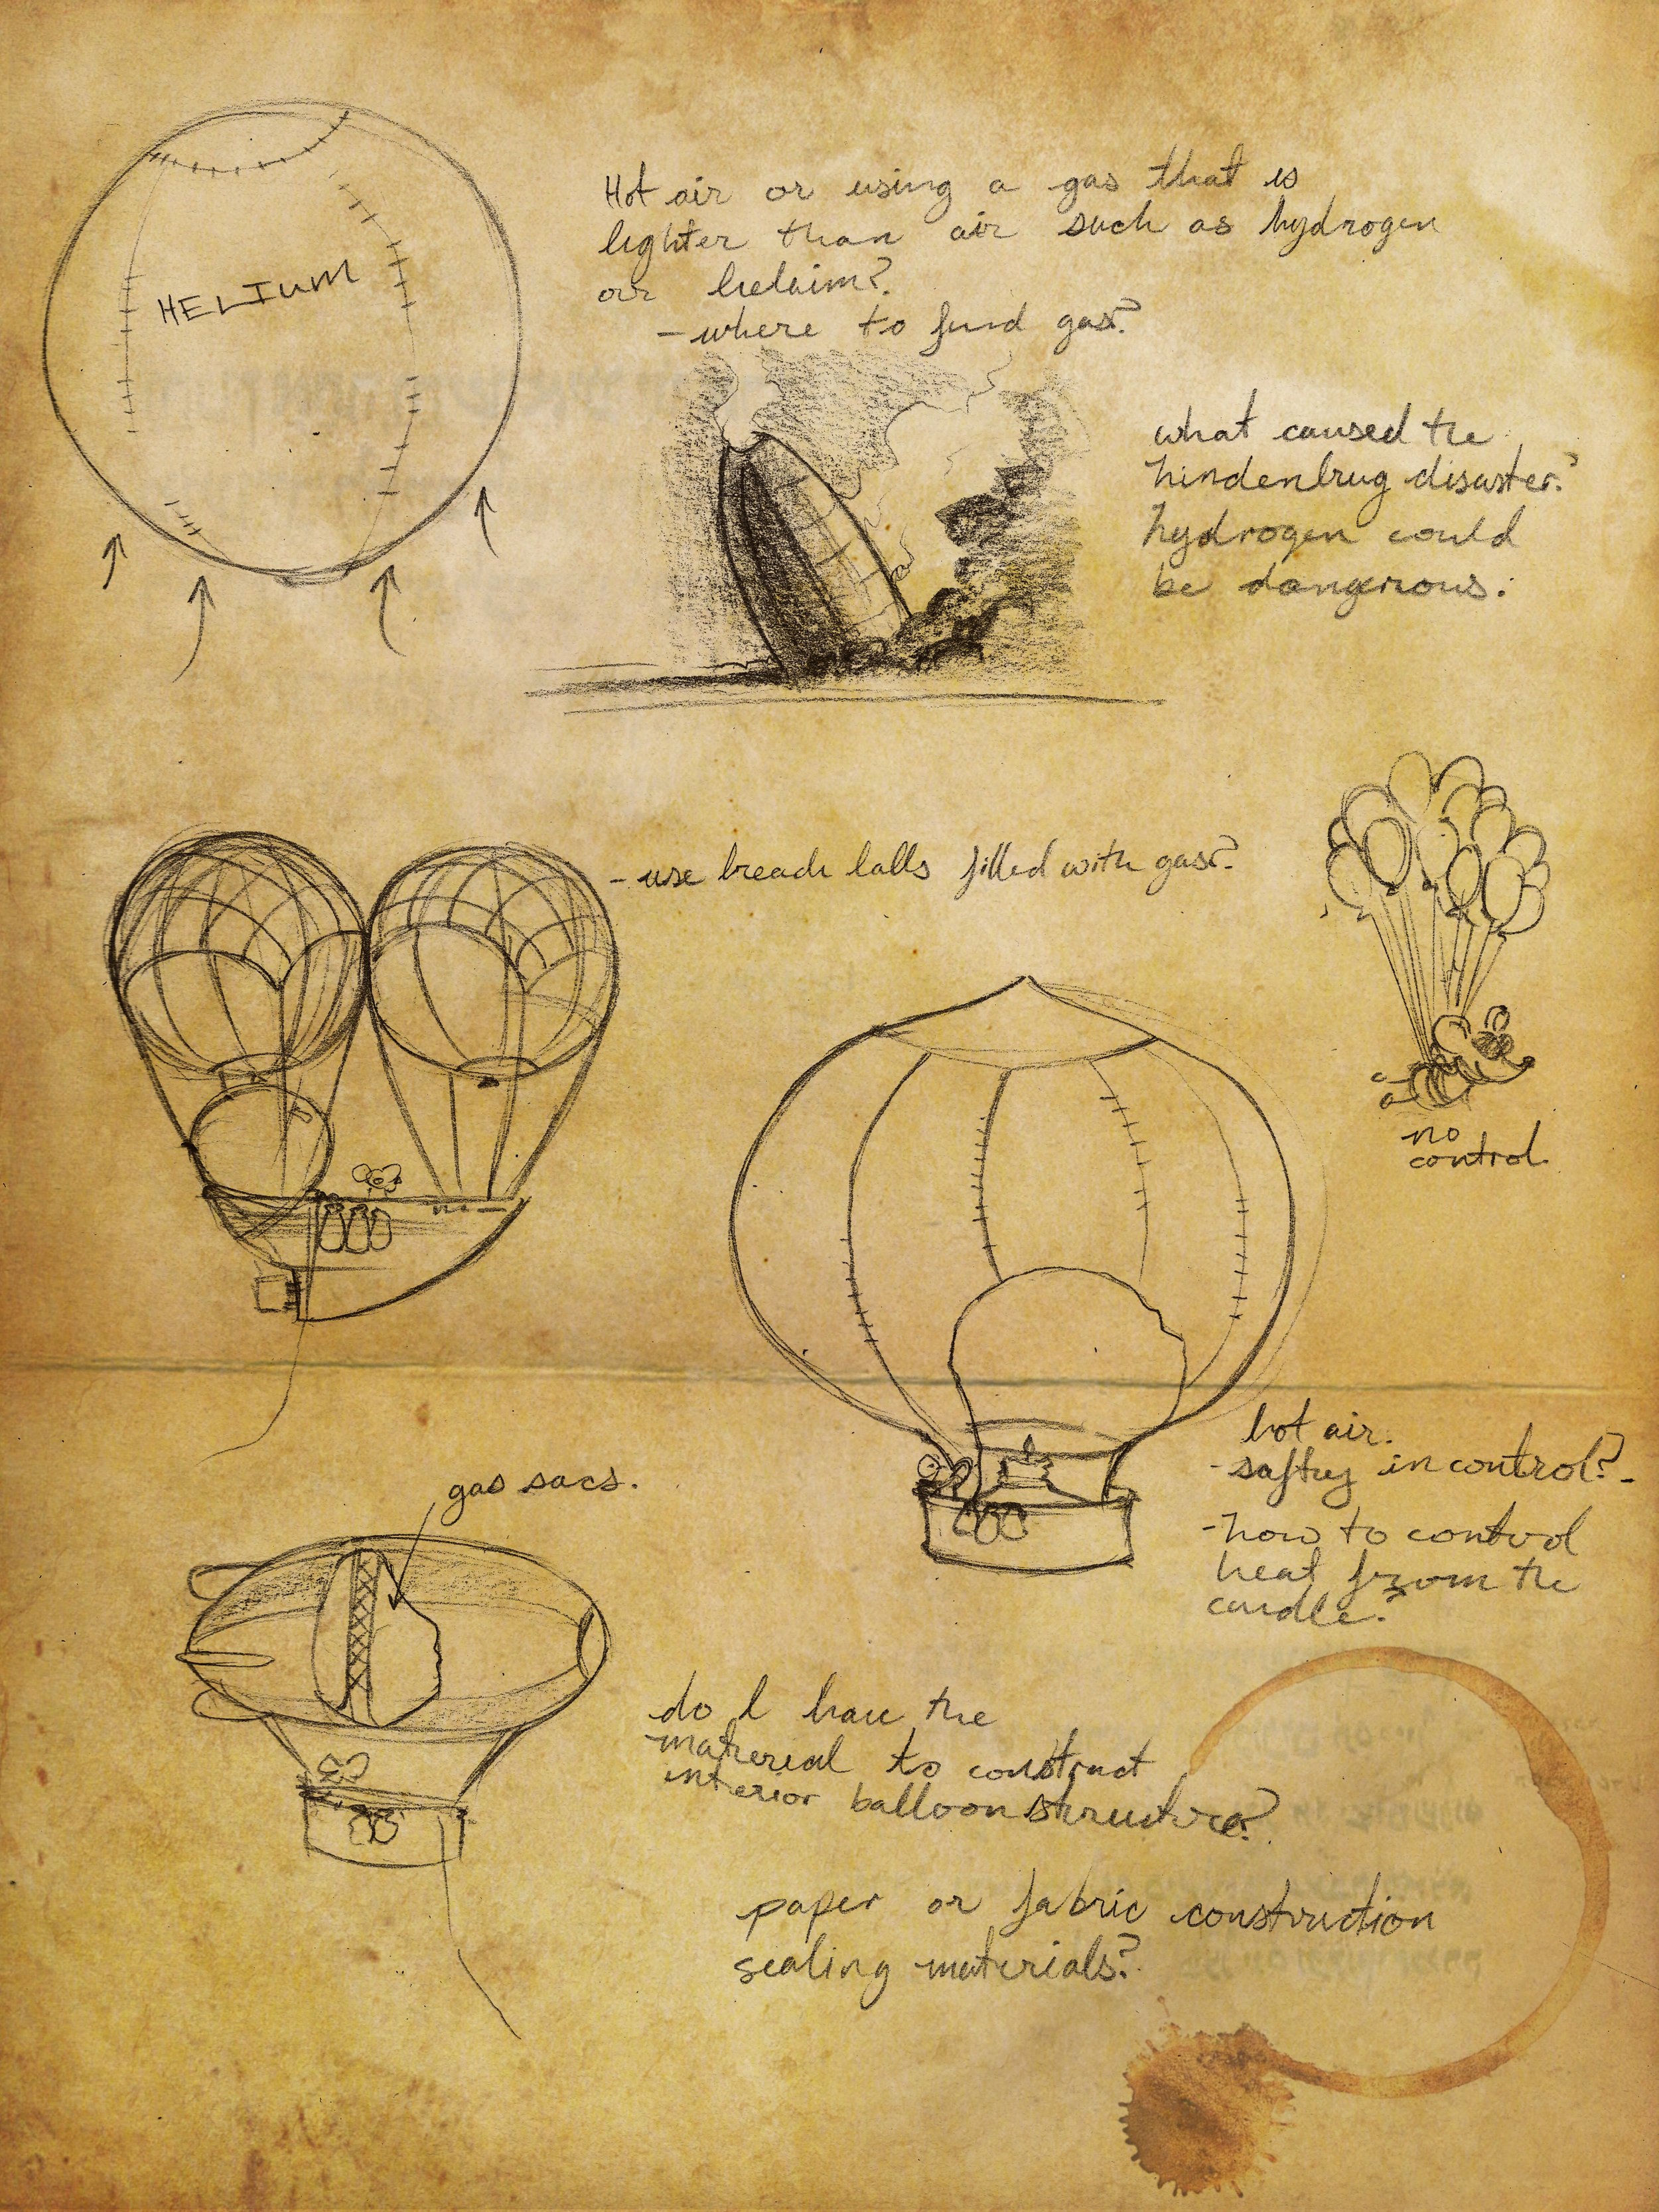 HELIUM
Hot air or using a gas that is
lighter than air such as hydrogen
or helaim?
- where to find gas?
what caused the
hindenbrug disaster?
hydrogen could
be dangerous.
- use breach balls filled with gas?
no
control.
hot air.
- saftey in control? -
- how to control
heat from the
candle?
gas sacs.
do I have the
matrerial to construct
interior balloon structure?
paper or fabric construction
sealing materials?